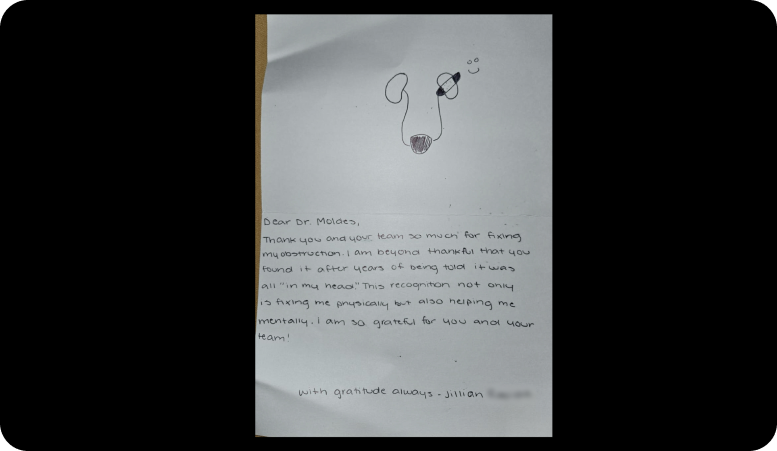 Dear Dr. Moldes,
Thank you and your team so much for fixing
my obstruction. I am beyond thankful that you
found it after years of being told it was
all "in my head." This recognition not only
is fixing me physically but also helping me
mentally. I am so grateful for you and your
team!
with gratitude always - Jillian